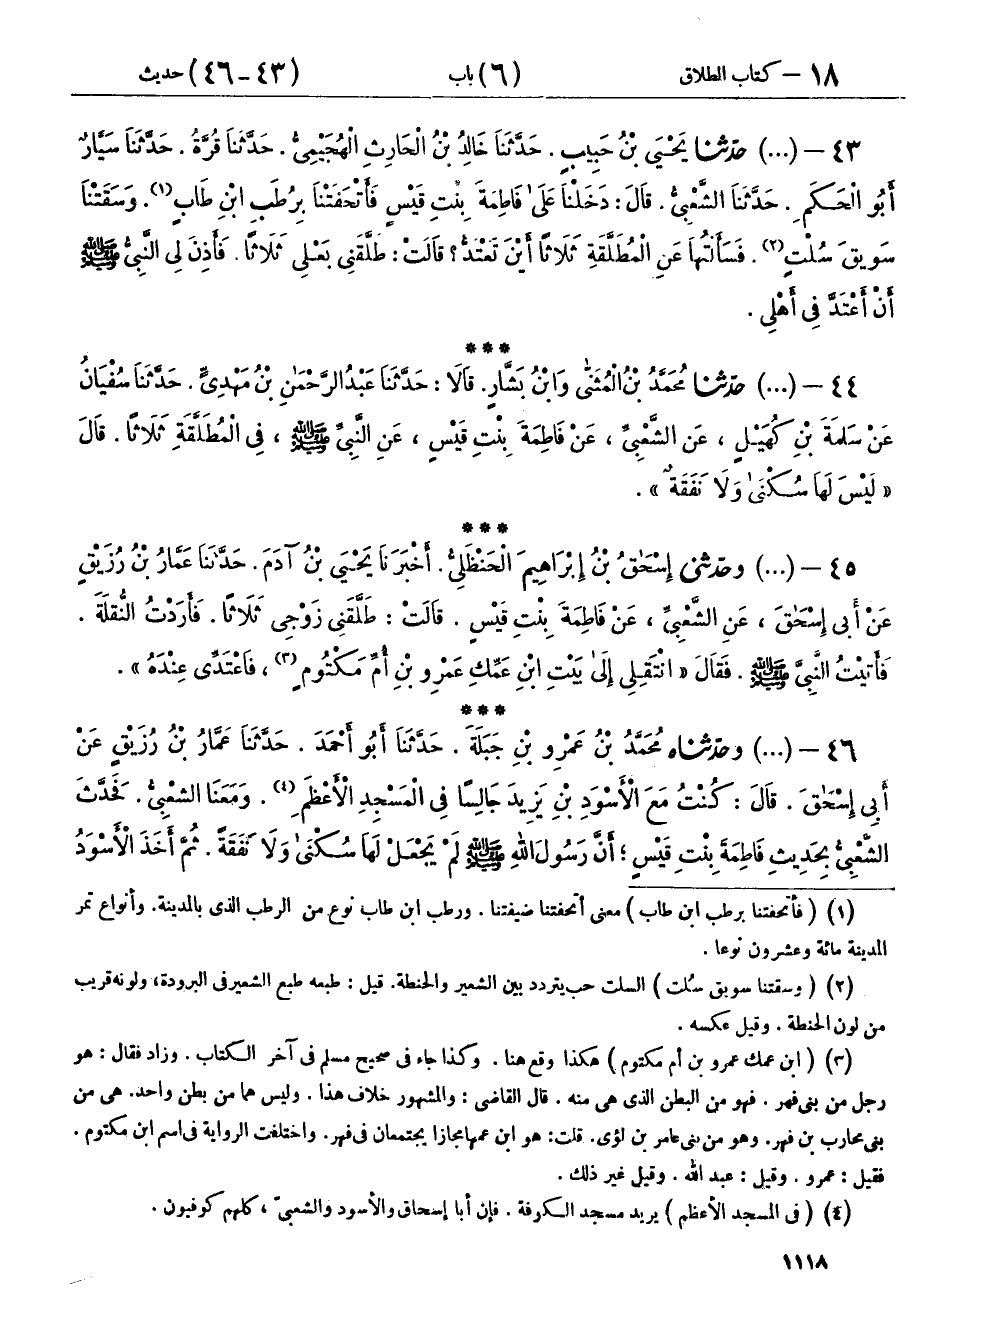 ١٨ – كتاب الطلاق (٦) باب (٤٣-٤٦) حديث
٤٣ – (...) حدّثنا يَحْيَىٰ بْنُ حَبِيبٍ. حَدَّثَنَا خَالِدُ بْنُ الْحَارِثِ الْهُجَيْمِيُّ. حَدَّثَنَا قُرَّةُ. حَدَّثَنَا سَيَّارٌ
أَبُو الْحَكَمِ. حَدَّثَنَا الشَّعْبِيُّ. قَالَ: دَخَلْنَا عَلَىٰ فَاطِمَةَ بِنْتِ قَيْسٍ فَأَتْحَفَتْنَا بِرُطَبِ ابْنِ طَابٍ(١). وَسَقَتْنَا
سَوِيقَ سُلْتٍ(٢). فَسَأَلْتُهَا عَنِ الْمُطَلَّقَةِ ثَلَاثًا أَيْنَ تَعْتَدُّ؟ قَالَتْ: طَلَّقَنِي بَعْلِي ثَلَاثًا. فَأَذِنَ لِي النَّبِيُّ ﷺ
أَنْ أَعْتَدَّ فِي أَهْلِي.
***
٤٤ – (...) حدّثنا مُحَمَّدُ بْنُ الْمُثَنَّىٰ وَابْنُ بَشَّارٍ. قَالَا: حَدَّثَنَا عَبْدُ الرَّحْمَٰنِ بْنُ مَهْدِيٍّ. حَدَّثَنَا سُفْيَانُ
عَنْ سَلَمَةَ بْنِ كُهَيْلٍ، عَنِ الشَّعْبِيِّ، عَنْ فَاطِمَةَ بِنْتِ قَيْسٍ، عَنِ النَّبِيِّ ﷺ، فِي الْمُطَلَّقَةِ ثَلَاثًا. قَالَ
« لَيْسَ لَهَا سُكْنَىٰ وَلَا نَفَقَةٌ ».
***
٤٥ – (...) وحدّثني إِسْحَٰقُ بْنُ إِبْرَاهِيمَ الْحَنْظَلِيُّ. أَخْبَرَنَا يَحْيَىٰ بْنُ آدَمَ. حَدَّثَنَا عَمَّارُ بْنُ رُزَيْقٍ
عَنْ أَبِي إِسْحَٰقَ، عَنِ الشَّعْبِيِّ، عَنْ فَاطِمَةَ بِنْتِ قَيْسٍ. قَالَتْ: طَلَّقَنِي زَوْجِي ثَلَاثًا. فَأَرَدْتُ النُّقْلَةَ.
فَأَتَيْتُ النَّبِيَّ ﷺ. فَقَالَ « انْتَقِلِي إِلَىٰ بَيْتِ ابْنِ عَمِّكِ عَمْرِو بْنِ أُمِّ مَكْتُومٍ(٣)، فَاعْتَدِّي عِنْدَهُ ».
***
٤٦ – (...) وحدّثناه مُحَمَّدُ بْنُ عَمْرِو بْنِ جَبَلَةَ. حَدَّثَنَا أَبُو أَحْمَدَ. حَدَّثَنَا عَمَّارُ بْنُ رُزَيْقٍ عَنْ
أَبِي إِسْحَٰقَ. قَالَ: كُنْتُ مَعَ الْأَسْوَدِ بْنِ يَزِيدَ جَالِسًا فِي الْمَسْجِدِ الْأَعْظَمِ(٤). وَمَعَنَا الشَّعْبِيُّ. فَحَدَّثَ
الشَّعْبِيُّ بِحَدِيثِ فَاطِمَةَ بِنْتِ قَيْسٍ؛ أَنَّ رَسُولَ اللهِ ﷺ لَمْ يَجْعَلْ لَهَا سُكْنَىٰ وَلَا نَفَقَةً. ثُمَّ أَخَذَ الْأَسْوَدُ
(١) (فأتحفتنا برطب ابن طاب) معنى أتحفتنا ضيفتنا. ورطب ابن طاب نوع من الرطب الذى بالمدينة. وأنواع تمر
المدينة مائة وعشرون نوعا.
(٢) (وسقتنا سويق سُلت) السلت حب يتردد بين الشعير والحنطة. قيل: طبعه طبع الشعير فى البرودة، ولونه قريب
من لون الحنطة. وقيل عكسه.
(٣) (ابن عمك عمرو بن أم مكتوم) هكذا وقع هنا. وكذا جاء فى صحيح مسلم فى آخر الكتاب. وزاد فقال: هو
رجل من بنى فهر. فهو من البطن الذى هى منه. قال القاضى: والمشهور خلاف هذا. وليس هما من بطن واحد. هى من
بنى محارب بن فهر. وهو من بنى عامر بن لؤى. قلت: هو ابن عمها مجازا يجتمعان فى فهر. واختلفت الرواية فى اسم ابن مكتوم.
فقيل: عمرو. وقيل: عبد الله. وقيل غير ذلك.
(٤) (فى المسجد الأعظم) يريد مسجد الكوفة. فإن أبا إسحاق والأسود والشعبىّ، كلهم كوفيون.
١١١٨